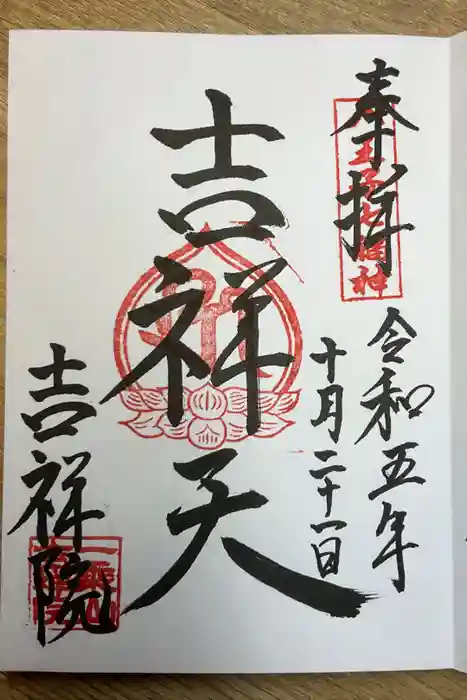 奉拝
八王子七福神
令和五年
十月二十一日
吉祥天
吉祥院